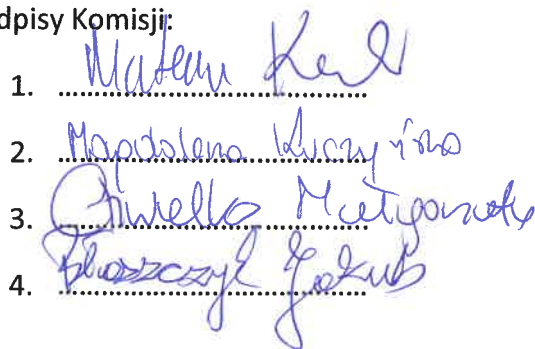 dpisy Komisji:
1. Mateusz
2. Magdalena Kuczyńska
3. Małgorzata
4. Błaszczyk Jakub